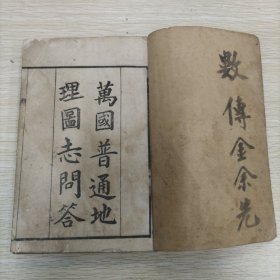 數傳金余先
萬國普通地
理圖志問答